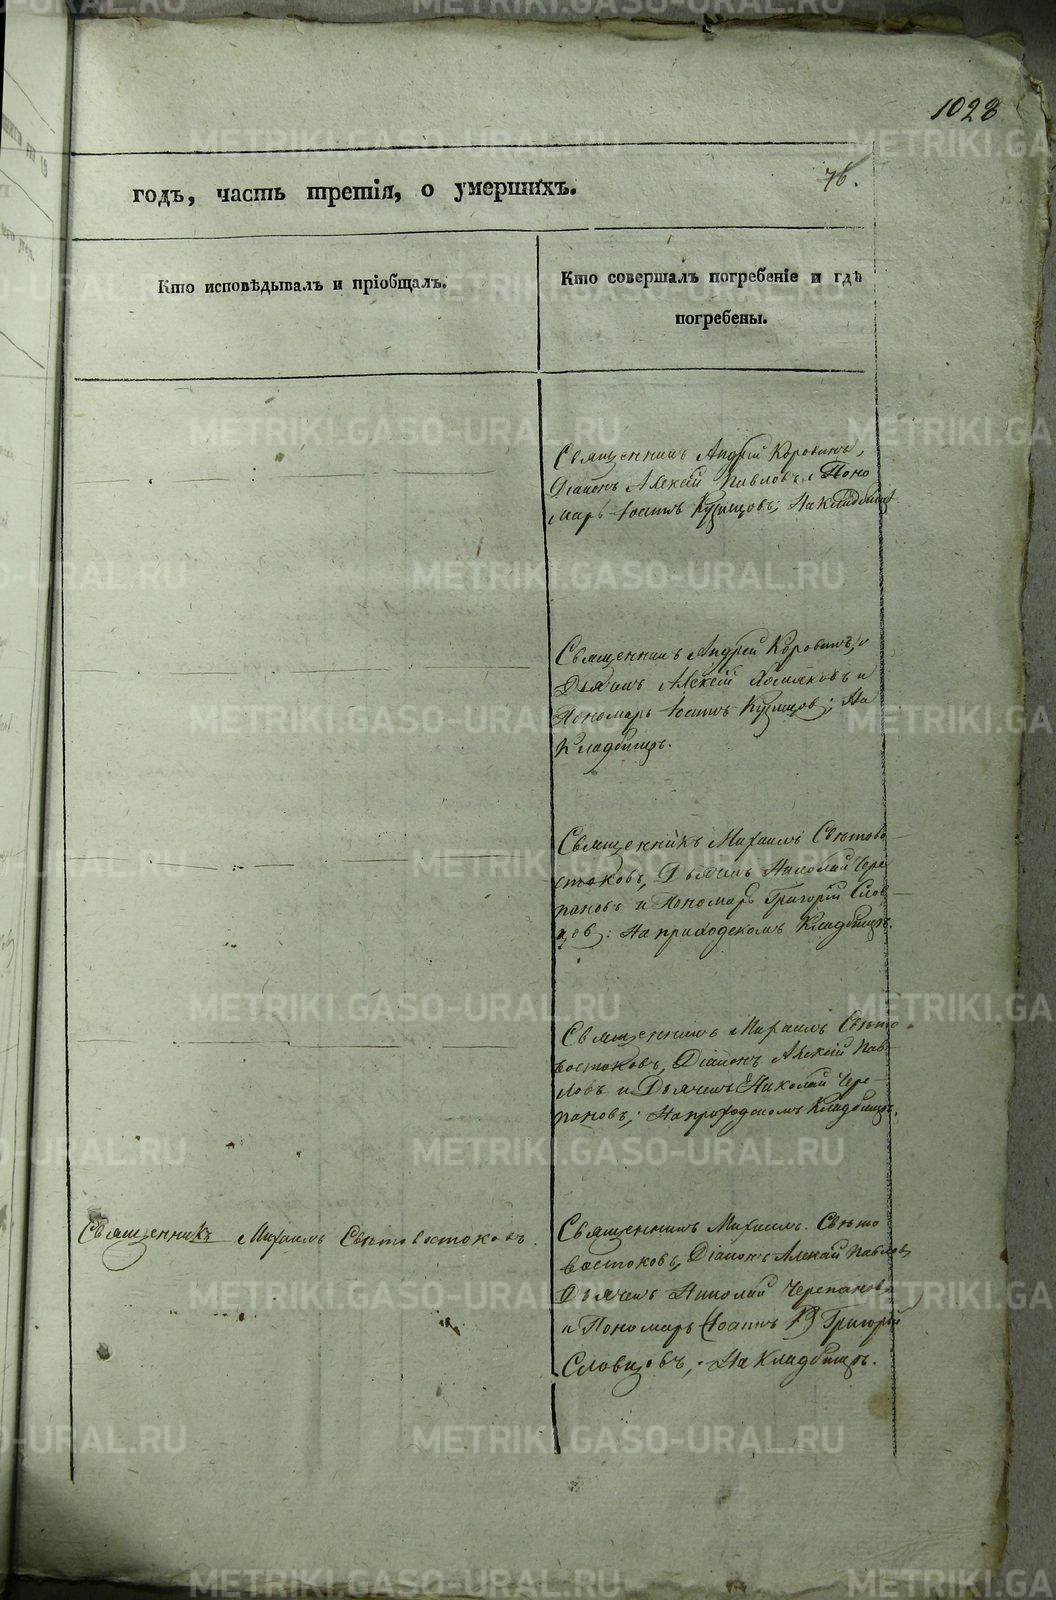 1028
годъ, часть третія, о умершихъ.
76.
Кто исповѣдывалъ и пріобщалъ.
Кто совершалъ погребеніе и гдѣ
погребены.
Священникъ Андрей Коровинъ,
Діаконъ Алексѣй Павловъ, Поно
марь Іоаннъ Кузнцовъ; На Кладбищѣ
Священникъ Андрей Коровинъ, и
Дьячекъ Алексѣй и
Пономарь Іоаннъ Кузнцов; На
Кладбищѣ.
Священникъ Михаилъ Свѣтово
стоковъ, Дьячекъ Николай Чере
пановъ и Пономарь Григорій Слов
цов: На приходскомъ Кладбищѣ.
Священникъ Михаилъ Свѣто
востоковъ, Діаконъ Алексѣй Пав
ловъ и Дьячекъ Николай Чере
пановъ; На приходскомъ Кладбищѣ.
Священникъ Михаилъ Свѣтовостоковъ.
Священникъ Михаилъ Свѣто
востоковъ, Діаконъ Алексѣй Павлов,
Дьячекъ Николай Черепановъ
и Пономарь (Іоаннъ К) Григорій
Словцовъ; На Кладбищѣ.
METRIKI.GASO-URAL.RU